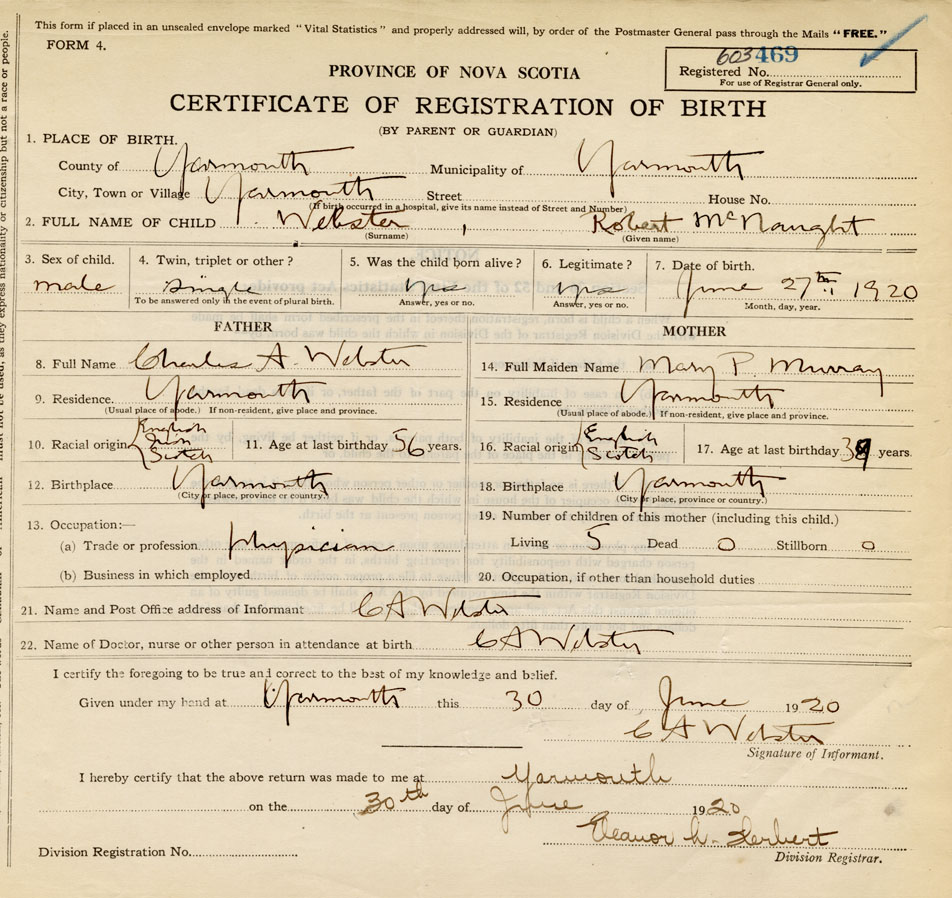 This form if placed in an unsealed envelope marked "Vital Statistics" and properly addressed will, by order of the Postmaster General pass through the Mails "FREE."
FORM 4.
603469
Registered No.
For use of Registrar General only.
PROVINCE OF NOVA SCOTIA
CERTIFICATE OF REGISTRATION OF BIRTH
(BY PARENT OR GUARDIAN)
1. PLACE OF BIRTH.
County of Yarmouth Municipality of Yarmouth
City, Town or Village Yarmouth Street House No.
(If birth occurred in a hospital, give its name instead of Street and Number)
2. FULL NAME OF CHILD Webster, Robert McNaught
(Surname) (Given name)
3. Sex of child. 4. Twin, triplet or other? 5. Was the child born alive? 6. Legitimate? 7. Date of birth.
male Single yes yes June 27th 1920
To be answered only in the event of plural birth. Answer, yes or no. Answer, yes or no. Month, day, year.
FATHER MOTHER
8. Full Name Charles A. Webster 14. Full Maiden Name Mary P. Murray
9. Residence. Yarmouth 15. Residence Yarmouth
(Usual place of abode.) If non-resident, give place and province. (Usual place of abode.) If non-resident, give place and province.
10. Racial origin English Irish Scotch 11. Age at last birthday 56 years. 16. Racial origin English Scotch 17. Age at last birthday 39 years.
12. Birthplace Yarmouth 18. Birthplace Yarmouth
(City or place, province or country.) (City or place, province or country.)
13. Occupation:— 19. Number of children of this mother (including this child.)
(a) Trade or profession physician Living 5 Dead 0 Stillborn 0
(b) Business in which employed 20. Occupation, if other than household duties
21. Name and Post Office address of Informant C A Webster
22. Name of Doctor, nurse or other person in attendance at birth C A Webster
I certify the foregoing to be true and correct to the best of my knowledge and belief.
Given under my hand at Yarmouth this 30 day of June 1920
C A Webster
Signature of Informant.
I hereby certify that the above return was made to me at Yarmouth
on the 30th day of June 1920
Eleanor h. Herbert
Division Registrar.
Division Registration No.